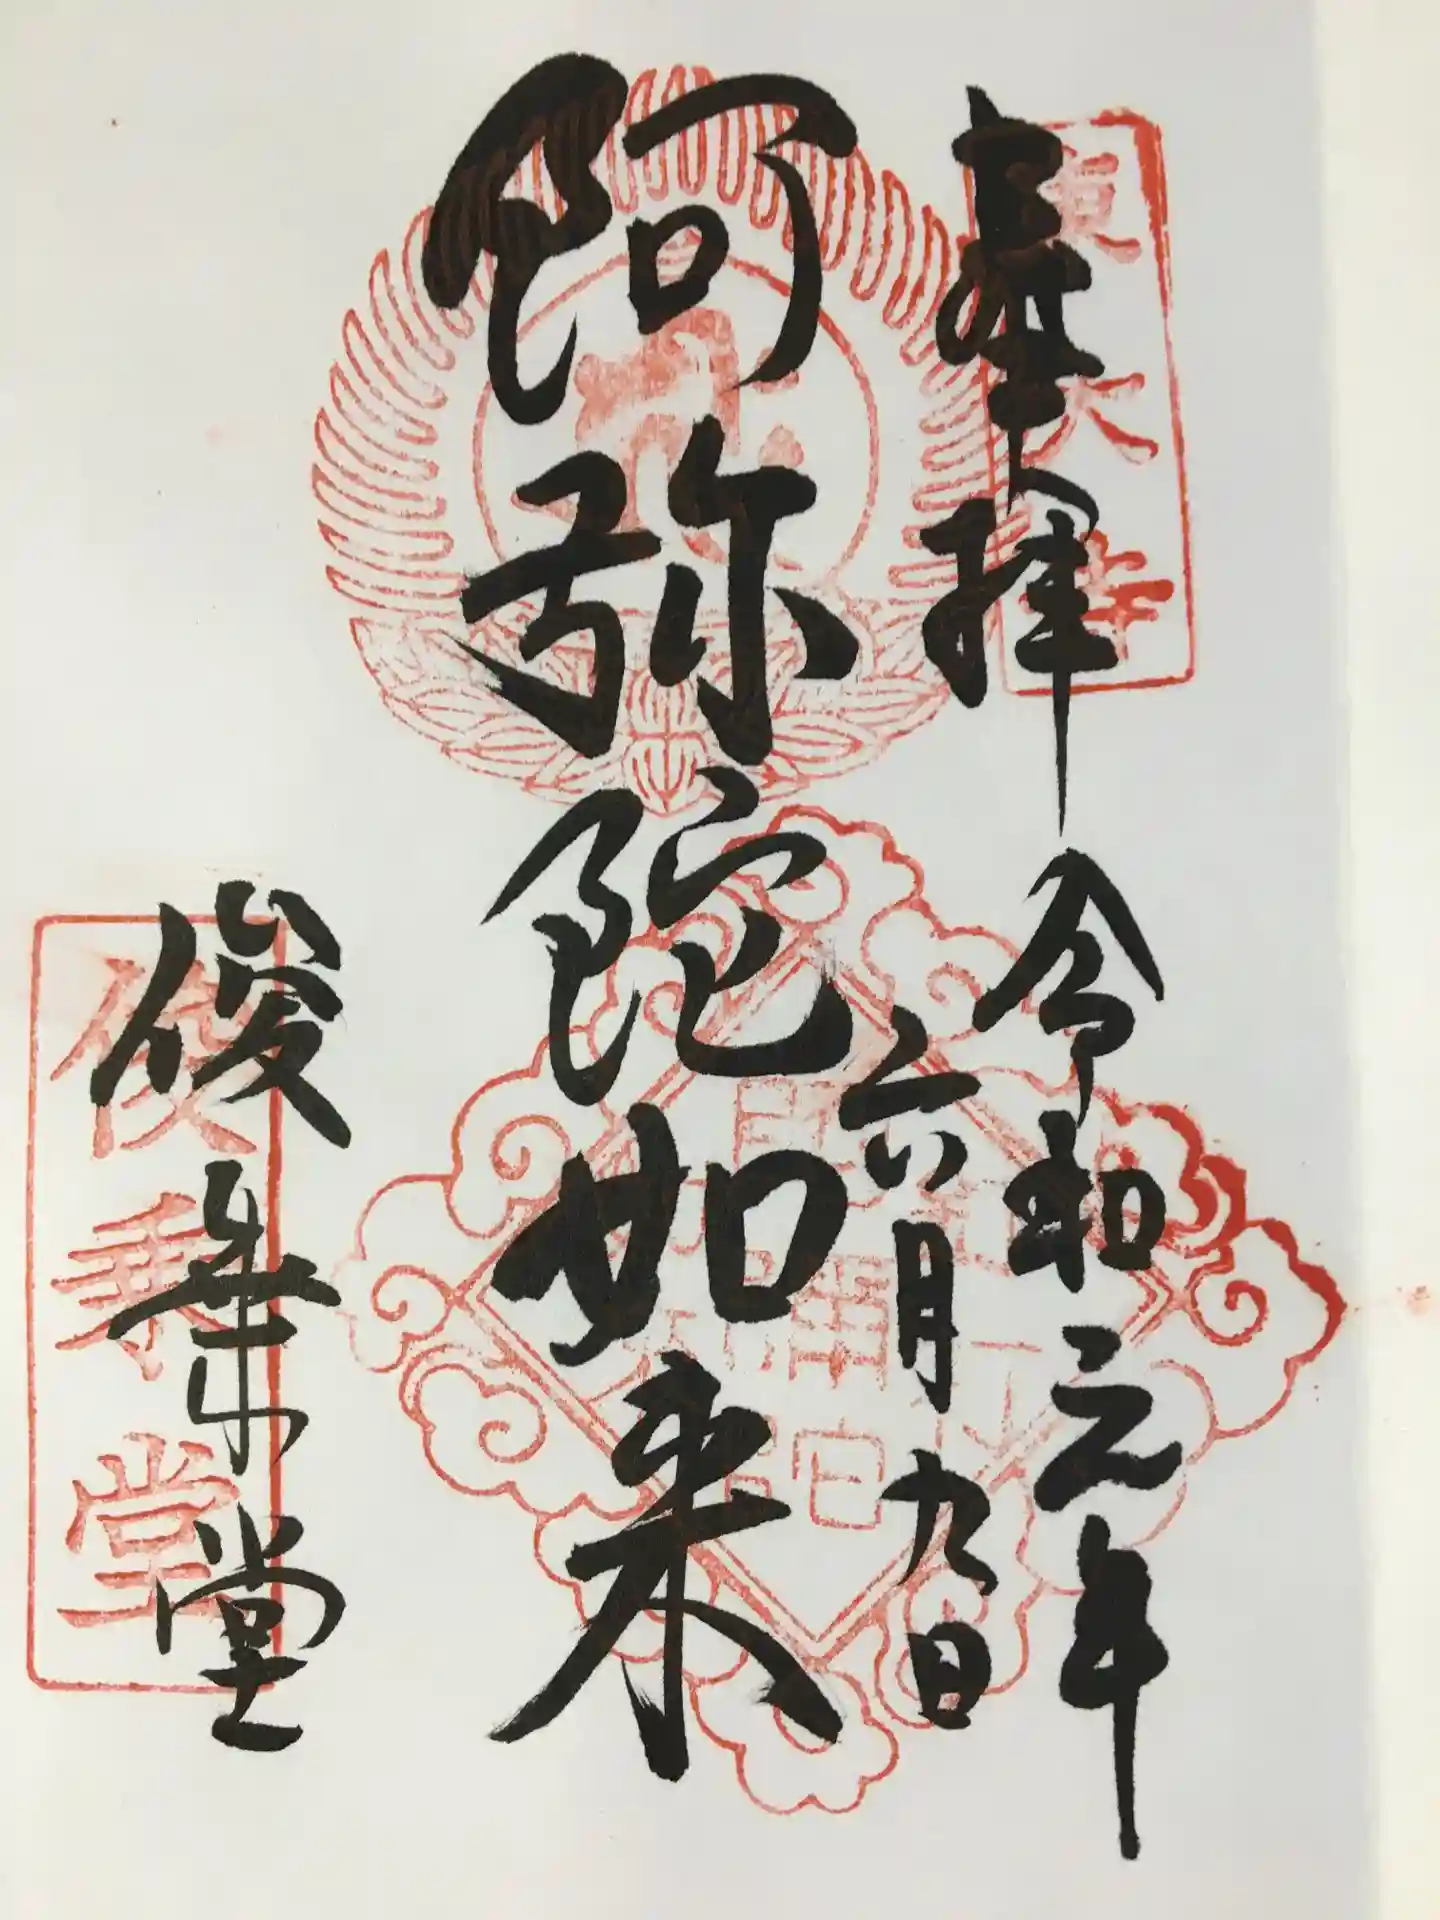 奉拝
令和元年
六月九日
阿弥陀如来
俊乗堂
東大寺
俊乗堂